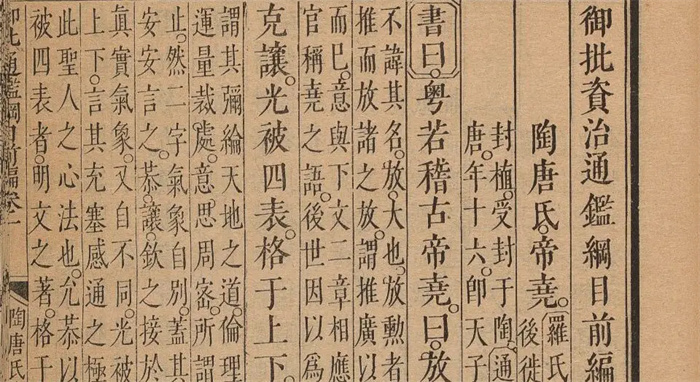 御批資治通鑑綱目前編
陶唐氏。帝堯。羅氏
後徙
封植。受封于陶。通
唐。年十六。卽天子
書曰。粤若稽古帝堯。曰。放
不諱其名。放。大也。放勳者
推而放諸之放。謂推廣以
而已。意與下文二章相應
官稱堯之語。後世因以爲
克讓。光被四表。格于上下。
謂其彌綸天地之道。倫理
運量裁處。意思周密。所謂
止。然二字氣象自別。蓋其
安安言之。恭。讓。欽之接於
眞實氣象。又自不同。光被
上下。言其充塞感通之極
此聖人之心法也。允恭以
被四表者。明文之著。格于
通鑑綱目前編卷一 陶唐氏